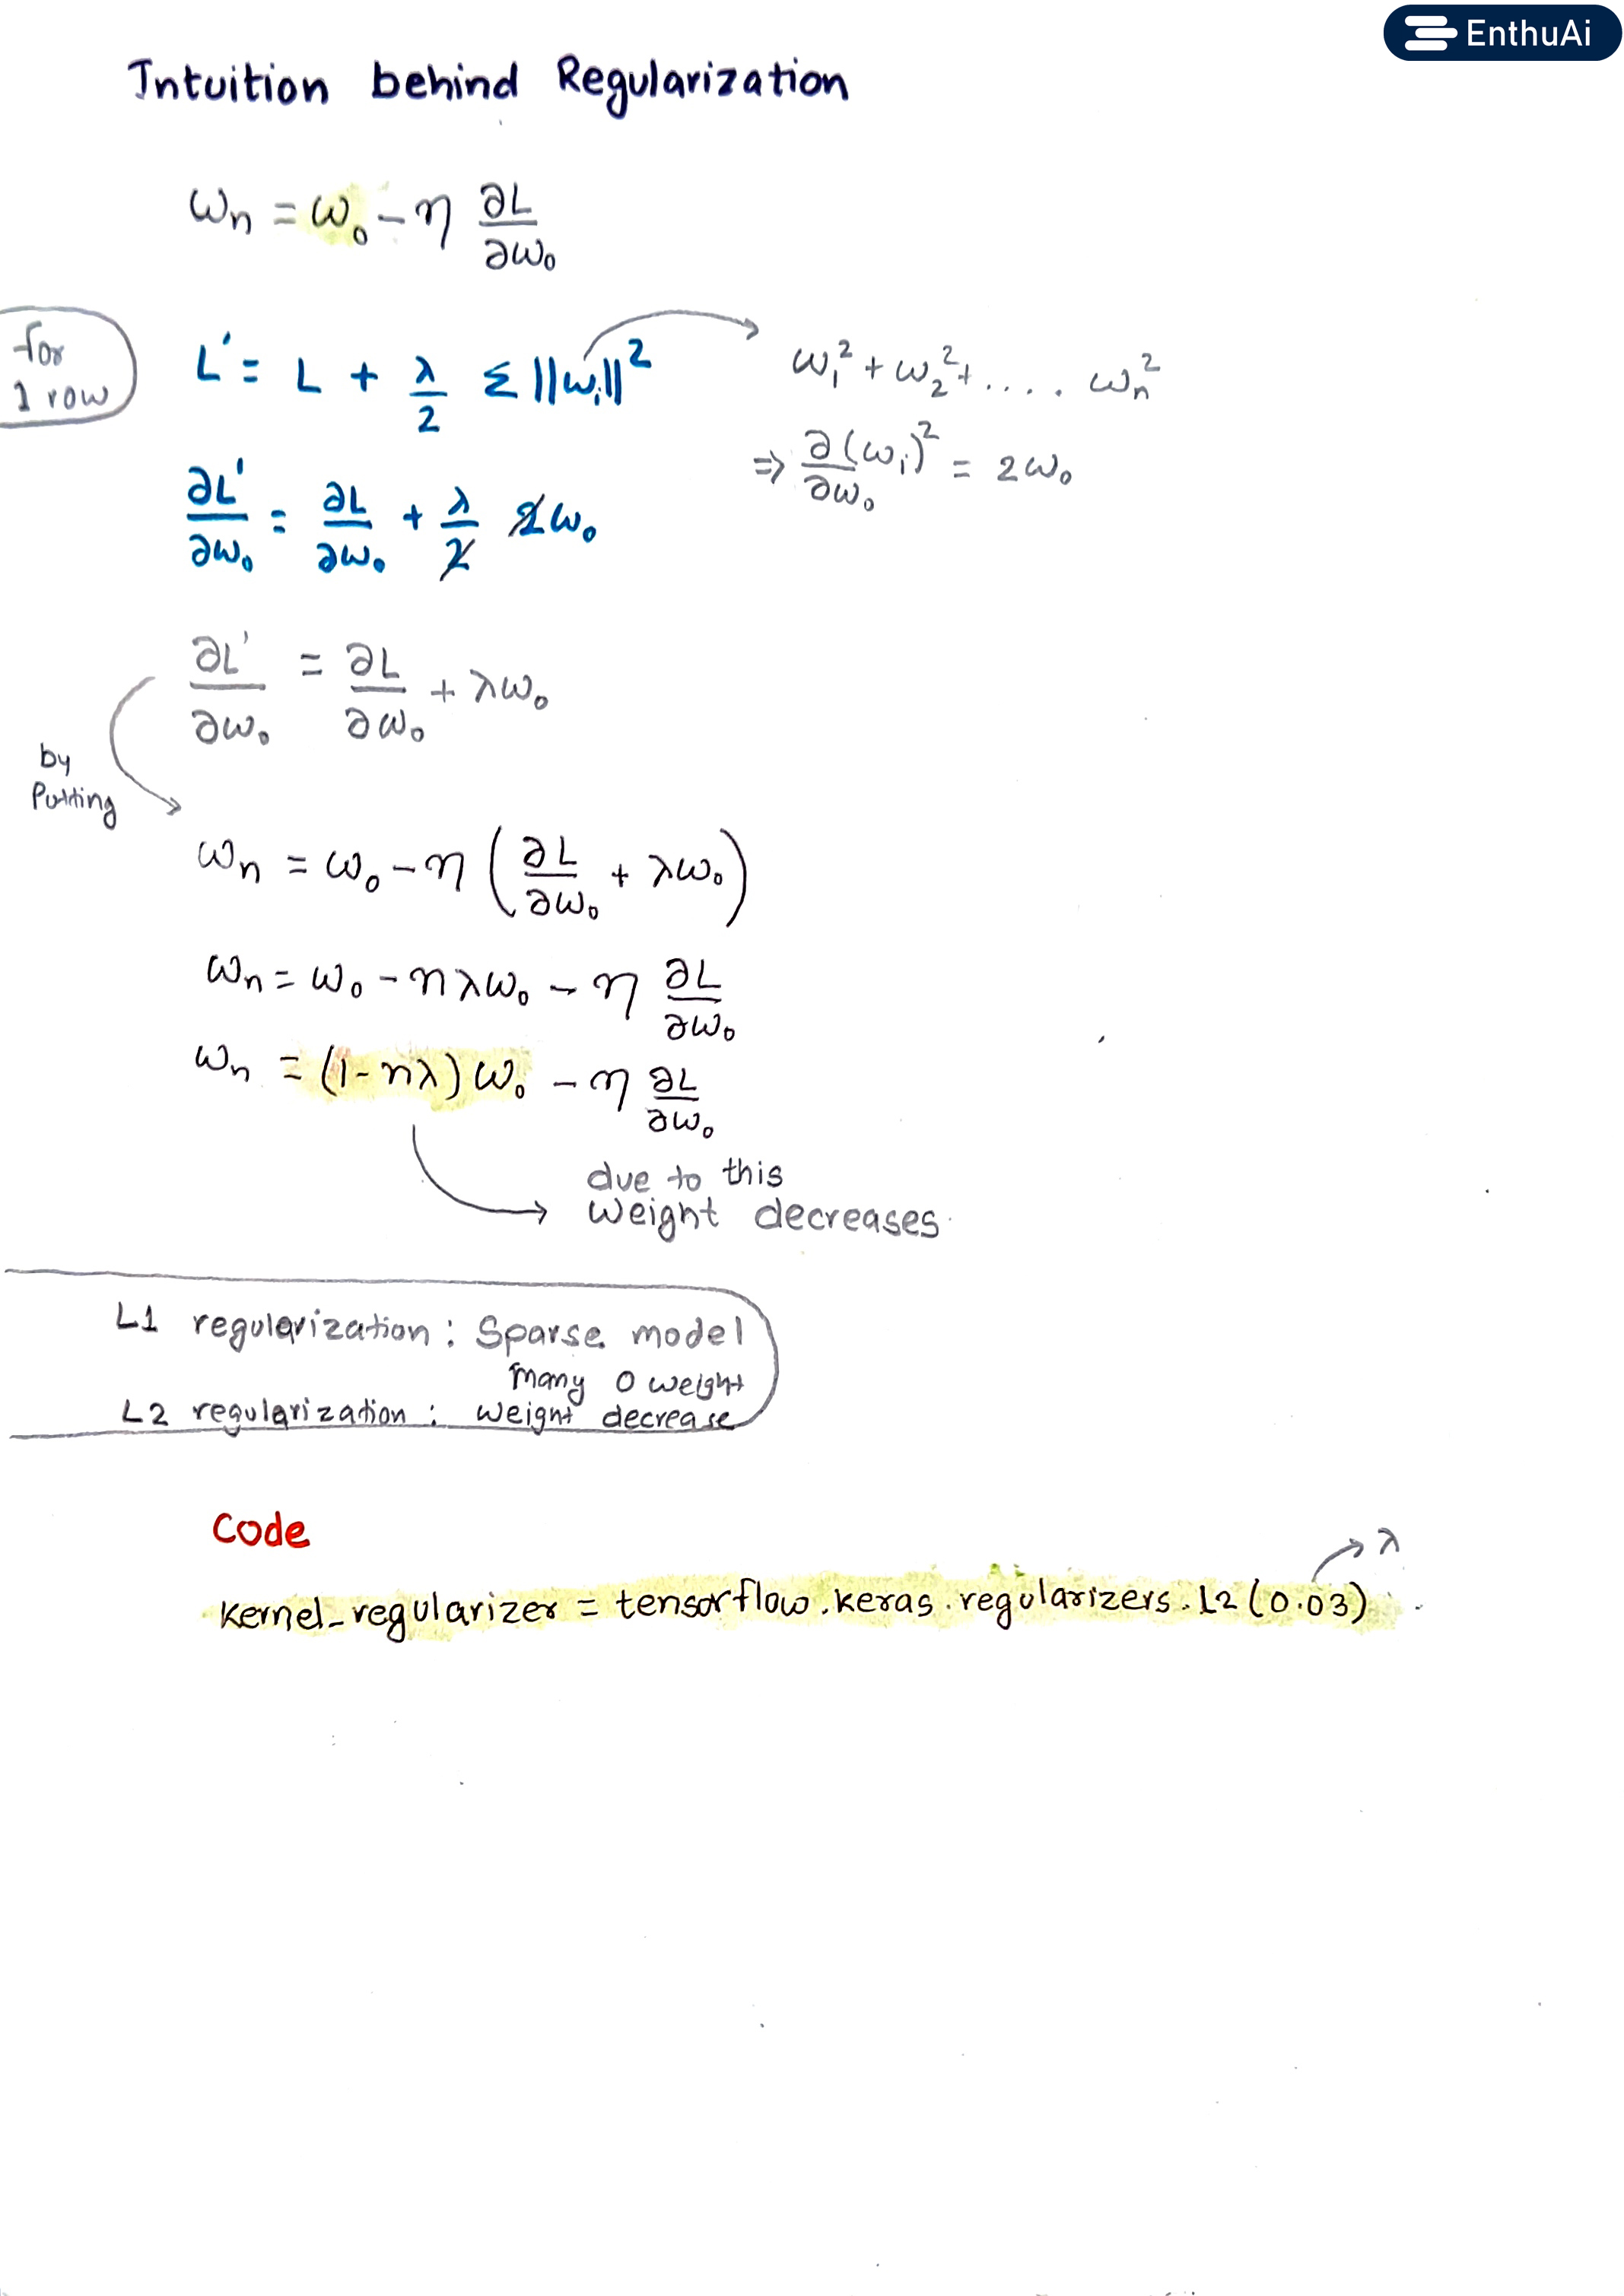 EnthuAi
Intuition behind Regularization
ωn = ω₀ - η ∂L/∂ω₀
for
1 row
L' = L + λ/2 Σ ||ωi||²
ω₁² + ω₂² + .... ωn²
⇒ ∂(ωi)²/∂ω₀ = 2ω₀
∂L'/∂ω₀ = ∂L/∂ω₀ + λ/2 2ω₀
∂L'/∂ω₀ = ∂L/∂ω₀ + λω₀
by
Putting
ωn = ω₀ - η (∂L/∂ω₀ + λω₀)
ωn = ω₀ - ηλω₀ - η ∂L/∂ω₀
ωn = (1-ηλ) ω₀ - η ∂L/∂ω₀
due to this
weight decreases
L1 regularization : Sparse model
many 0 weight
L2 regularization : weight decrease
Code
λ
kernel_regularizer = tensorflow.keras.regularizers.L2(0.03)